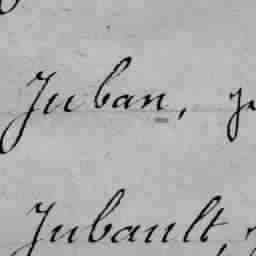 Juban,
Jubault,